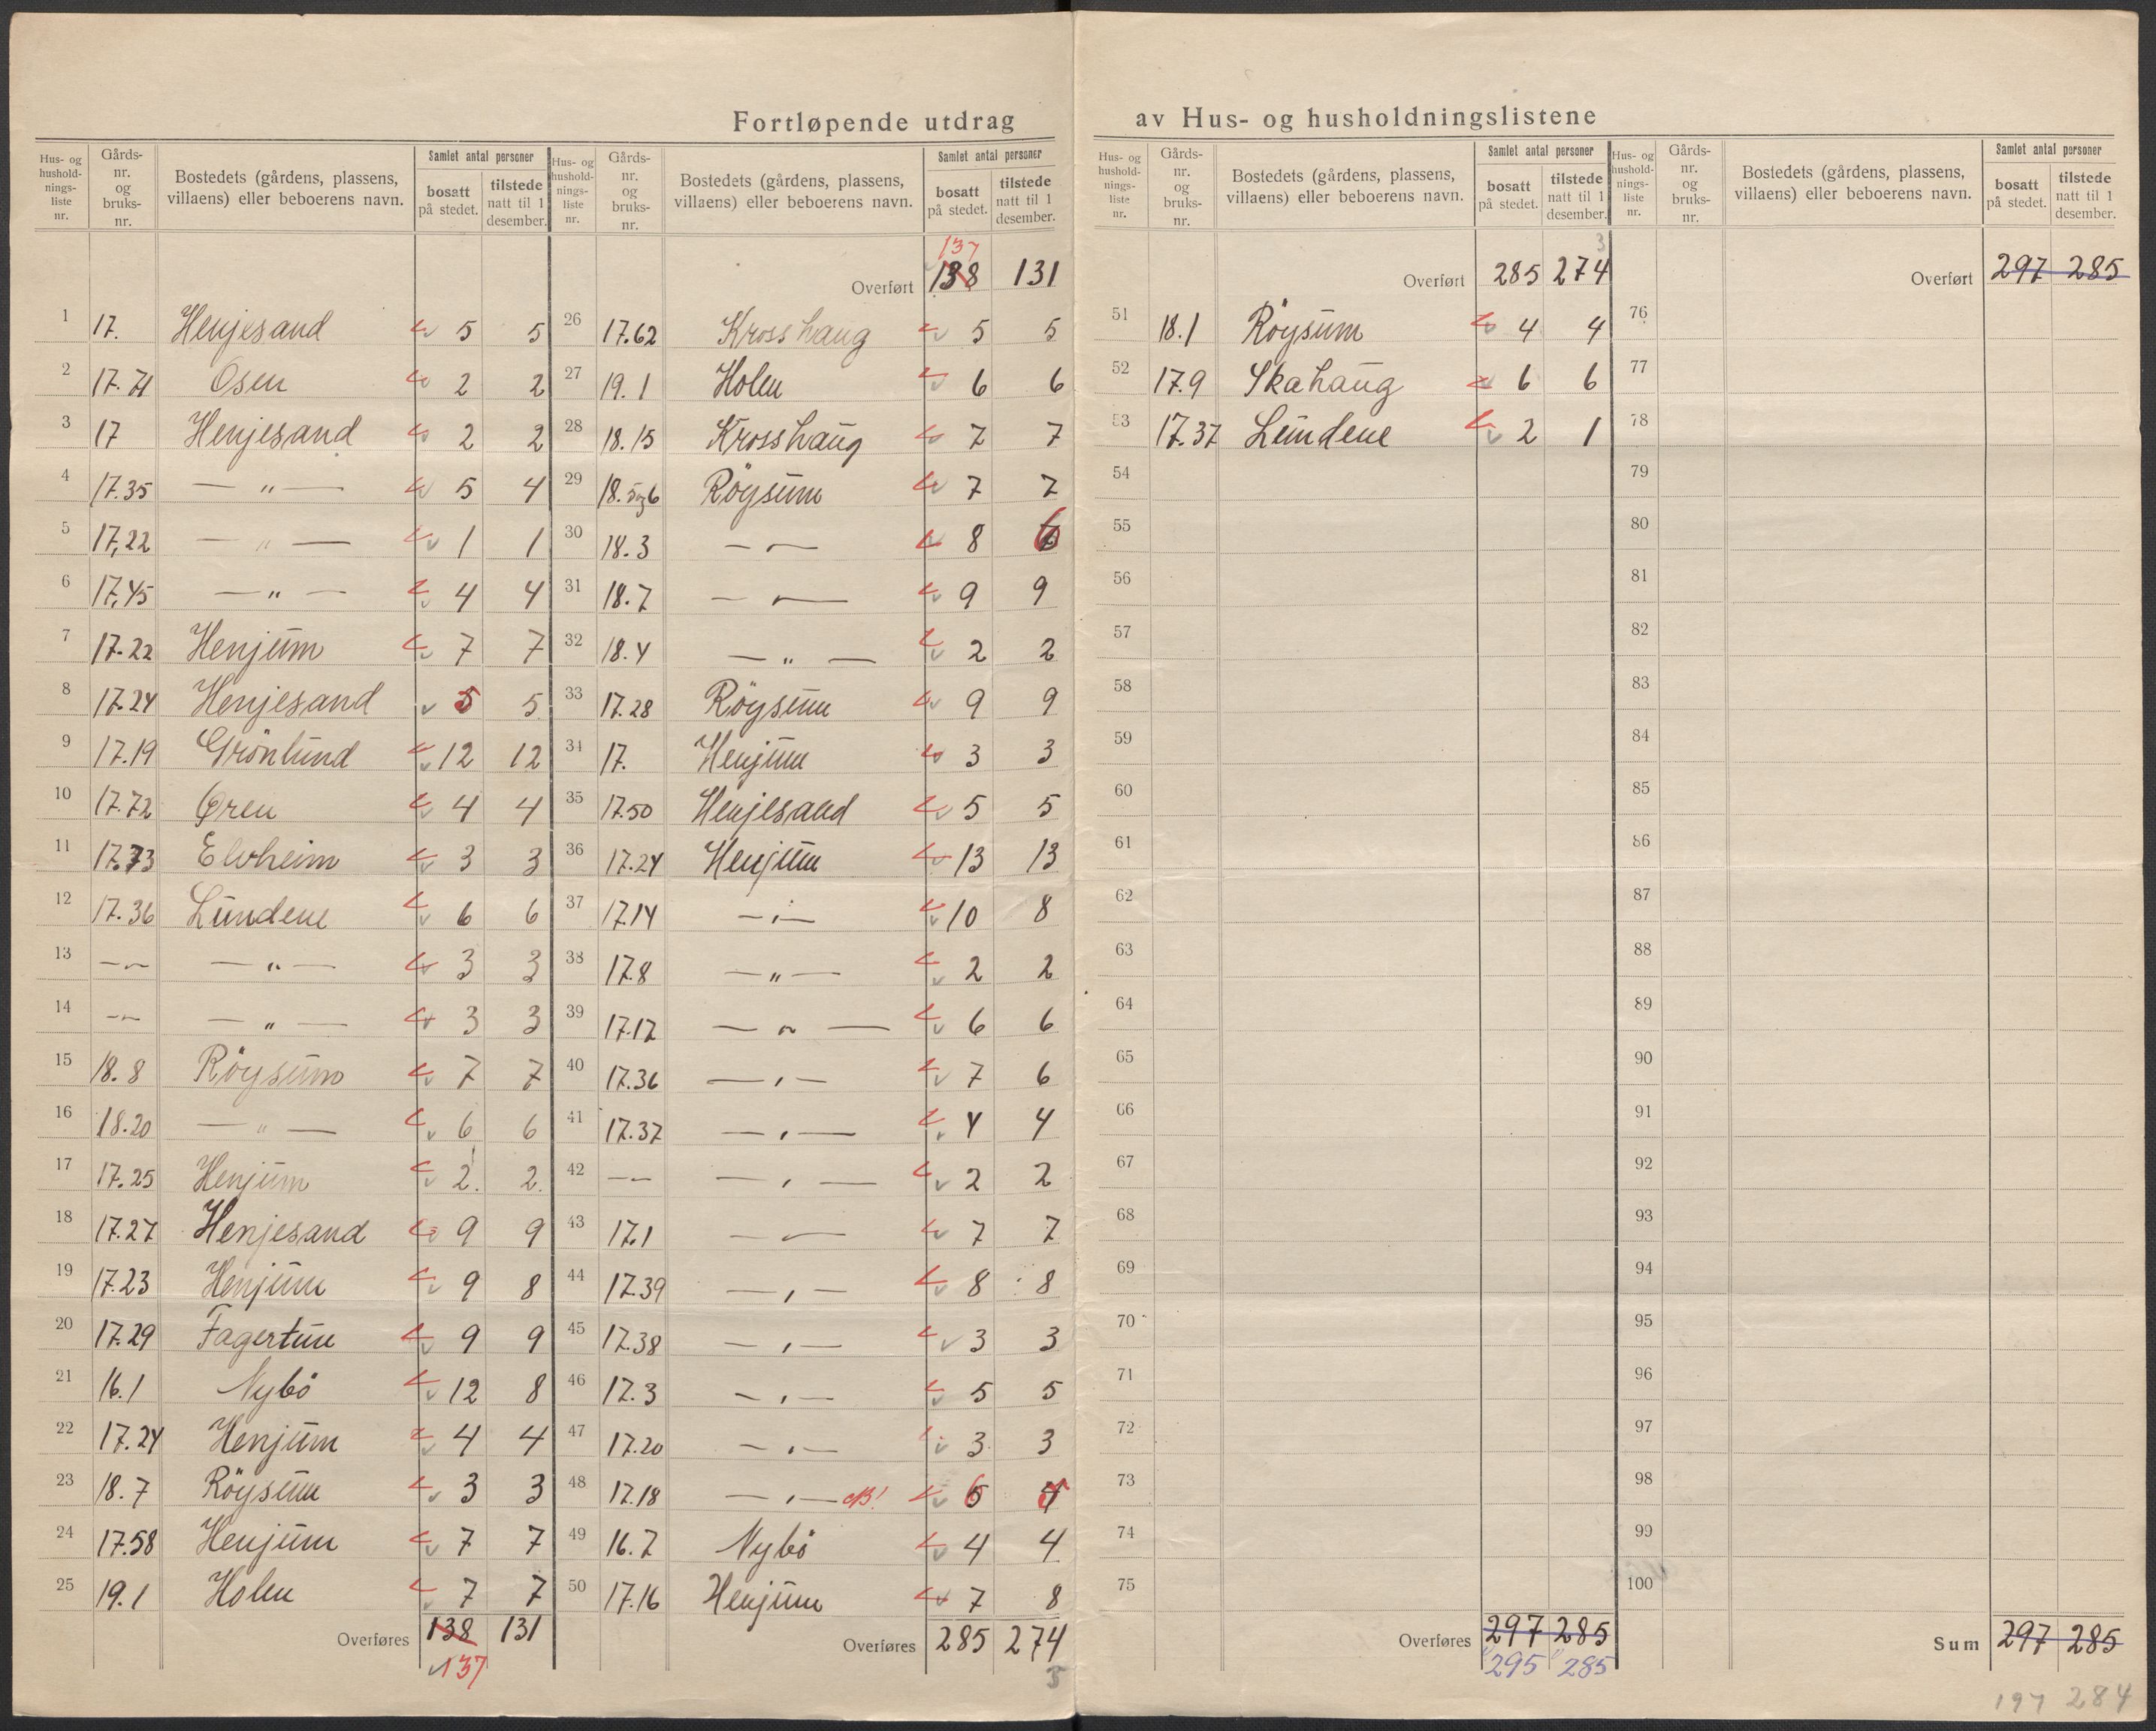 Fortløpende utdrag av Hus- og husholdningslistene
Hus- og hushold-nings-liste nr. | Gårds-nr. og bruks-nr. | Bostedets (gårdens, plassens, villaens) eller beboerens navn. | Samlet antal personer | bosatt på stedet. | tilstede natt til 1 desember.
1 17. Henjesand 5 5
2 17.71 Osen 2 2
3 17 Henjesand 2 2
4 17.35 — " — 5 4
5 17,22 — " — 1 1
6 17,45 — " — 4 4
7 17.22 Henjum 7 7
8 17.24 Henjesand 5 5
9 17.19 Grönlund 12 12
10 17.72 Øren 4 4
11 17.73 Elvheim 3 3
12 17.36 Lundene 6 6
13 —"— — " — 3 3
14 —"— — " — 3 3
15 18.8 Röysum 7 7
16 18.20 — " — 6 6
17 17.25 Henjum 2. 2.
18 17.27 Henjesand 9 9
19 17.23 Henjum 9 8
20 17.29 Fagertun 9 9
21 16.1 Nybö 12 8
22 17.24 Henjum 4 4
23 18.7 Röysum 3 3
24 17.58 Henjum 7 7
25 19.1 Holen 7 7
Overføres 138 131
137
Hus- og hushold-nings-liste nr. | Gårds-nr. og bruks-nr. | Bostedets (gårdens, plassens, villaens) eller beboerens navn. | Samlet antal personer | bosatt på stedet. | tilstede natt til 1 desember.
137
Overført 138 131
26 17.62 Krosshaug 5 5
27 19.1 Holen 6 6
28 18.15 Krosshaug 7 7
29 18.5og6 Röysum 7 7
30 18.3 — " — 8 6
31 18.7 — " — 9 9
32 18.4 — " — 2 2
33 17.28 Röysum 9 9
34 17. Henjum 3 3
35 17.50 Henjesand 5 5
36 17.24 Henjum 13 13
37 17.14 — " — 10 8
38 17.8 — " — 2 2
39 17.12 — " — 6 6
40 17.36 — " — 7 6
41 17.37 — " — 4 4
42 —"— — " — 2 2
43 17.1 — " — 7 7
44 17.39 — " — 8 8
45 17.38 — " — 3 3
46 17.3 — " — 5 5
47 17.20 — " — 3 3
48 17.18 — " — NB!
49 16.7 Nybö 4 4
50 17.16 Henjum 7 8
Overføres 285 274
3
Hus- og hushold-nings-liste nr. | Gårds-nr. og bruks-nr. | Bostedets (gårdens, plassens, villaens) eller beboerens navn. | Samlet antal personer | bosatt på stedet. | tilstede natt til 1 desember.
3
Overført 285 274
51 18.1 Röysum 4 4
52 17.9 Skahaug 6 6
53 17.37 Lundene 2 1
54
55
56
57
58
59
60
61
62
63
64
65
66
67
68
69
70
71
72
73
74
75
Overføres 297 285
295 285
Hus- og hushold-nings-liste nr. | Gårds-nr. og bruks-nr. | Bostedets (gårdens, plassens, villaens) eller beboerens navn. | Samlet antal personer | bosatt på stedet. | tilstede natt til 1 desember.
Overført 297 285
76
77
78
79
80
81
82
83
84
85
86
87
88
89
90
91
92
93
94
95
96
97
98
99
100
Sum 297 285
197 284